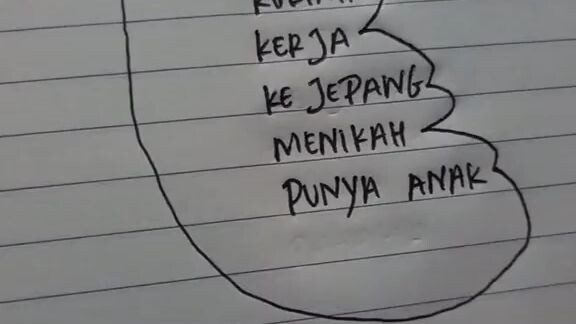 KERJA
KE JEPANG
MENIKAH
PUNYA ANAK